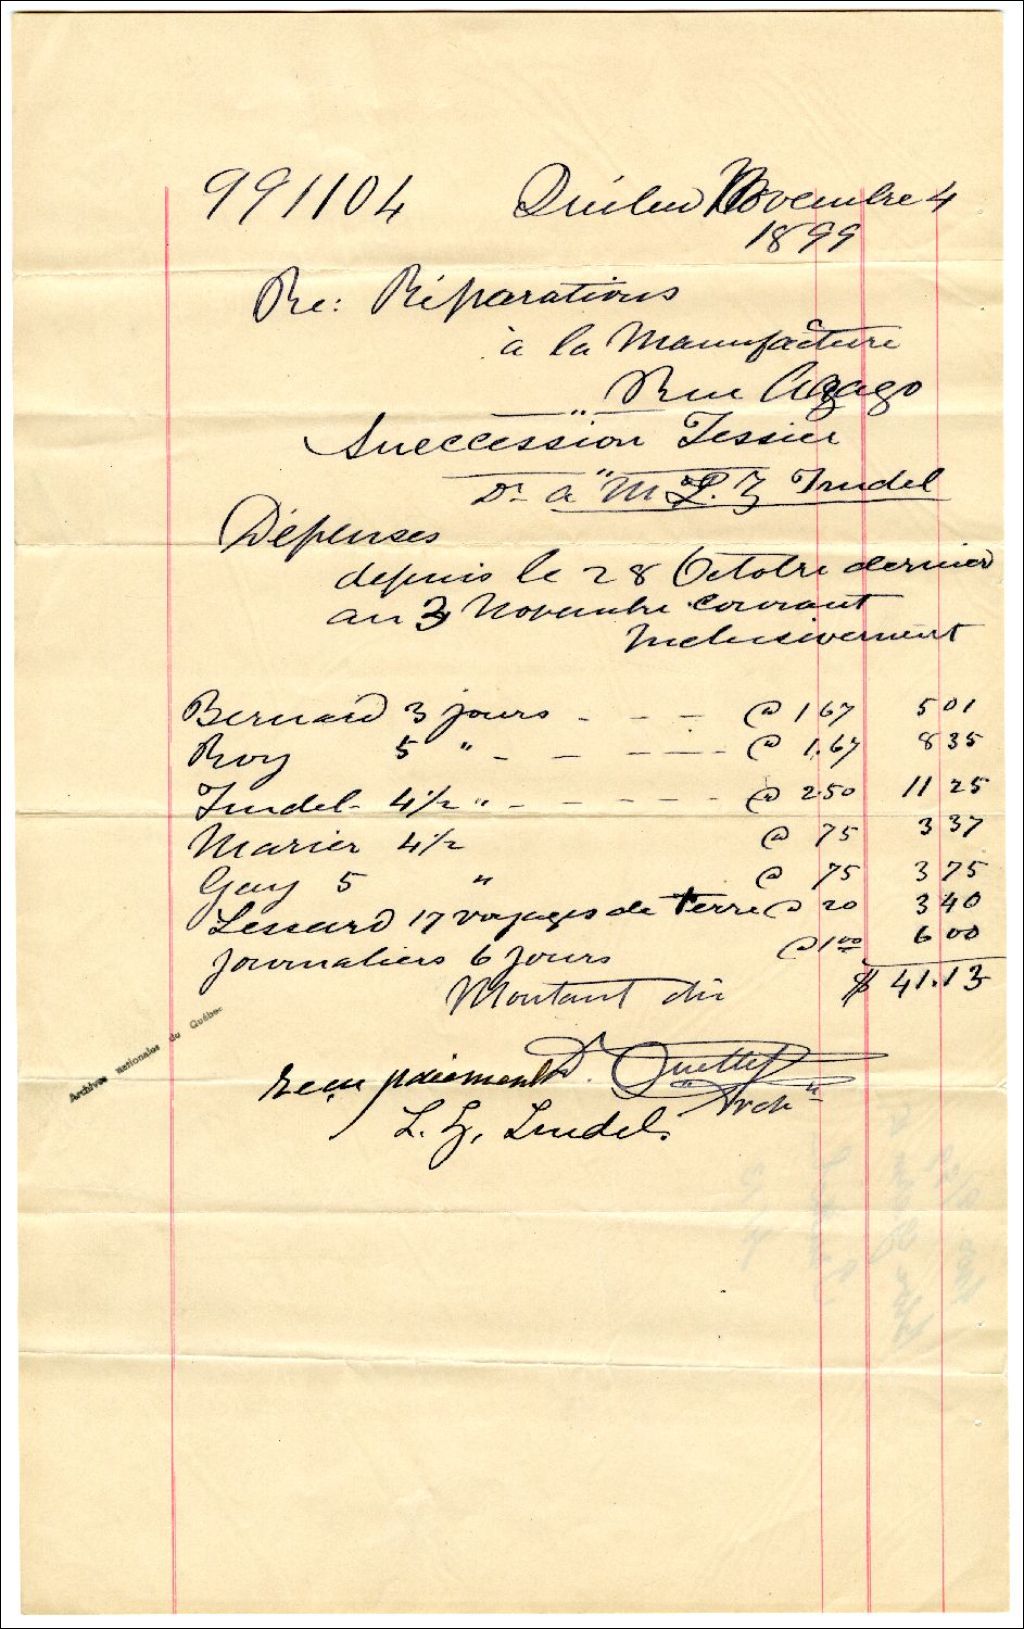 991104 Québec Novembre 4
1899
Re: Réparations
à la Manufacture
Rue Arago
Succession Tessier
Dr à M L. Z Trudel
Dépenses
depuis le 28 Octobre dernier
au 3 Novembre Courant
Inclusivement
Bernard 3 jours - - - - @ 1 67 5 01
Roy 5 " - - - - - @ 1.67 8 35
Trudel - 4 1/2 " - - - - - @ 2 50 11 25
Marier 4 1/2 @ 75 3 37
Guy 5 " @ 75 3 75
Lessard 17 voyages de terre @ 20 3 40
Journaliers 6 jours @ 1 00 6 00
Montant dû $ 41.13
D. Ouellet
reçu paiement Arch
L. Z. Trudel
Archives nationales du Québec